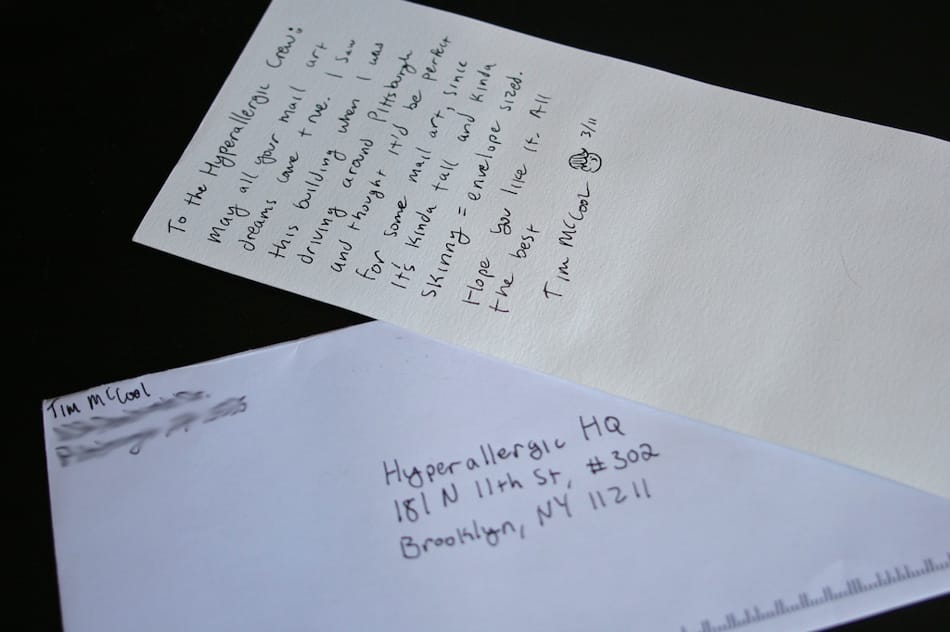 To the Hyperallergic Crew:
May all your mail art
dreams come true. I saw
this building when I was
driving around Pittsburgh
and thought it'd be perfect
for some mail art, since
it's kinda tall and kinda
skinny = envelope sized.
Hope you like it. All
the best
Tim McCool 3/11
Tim McCool
Hyperallergic HQ
181 N 11th St, #302
Brooklyn, NY 11211